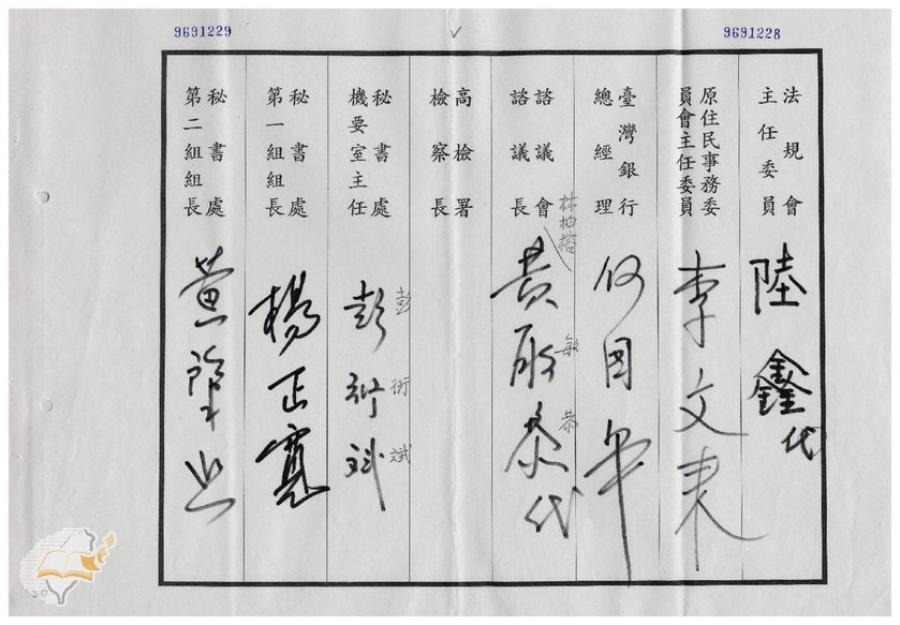 9691229
9691228
法規會
主任委員
陸鑫代
原住民事務委
員會主任委員
李文來
臺灣銀行
總經理
何國華
諮議會
諮議長
林柏榕
黃敏恭代
敏恭
高檢署
檢察長
秘書處
機要室主任
彭衍斌
彭衍斌
秘書處
第一組組長
楊正寬
秘書處
第二組組長